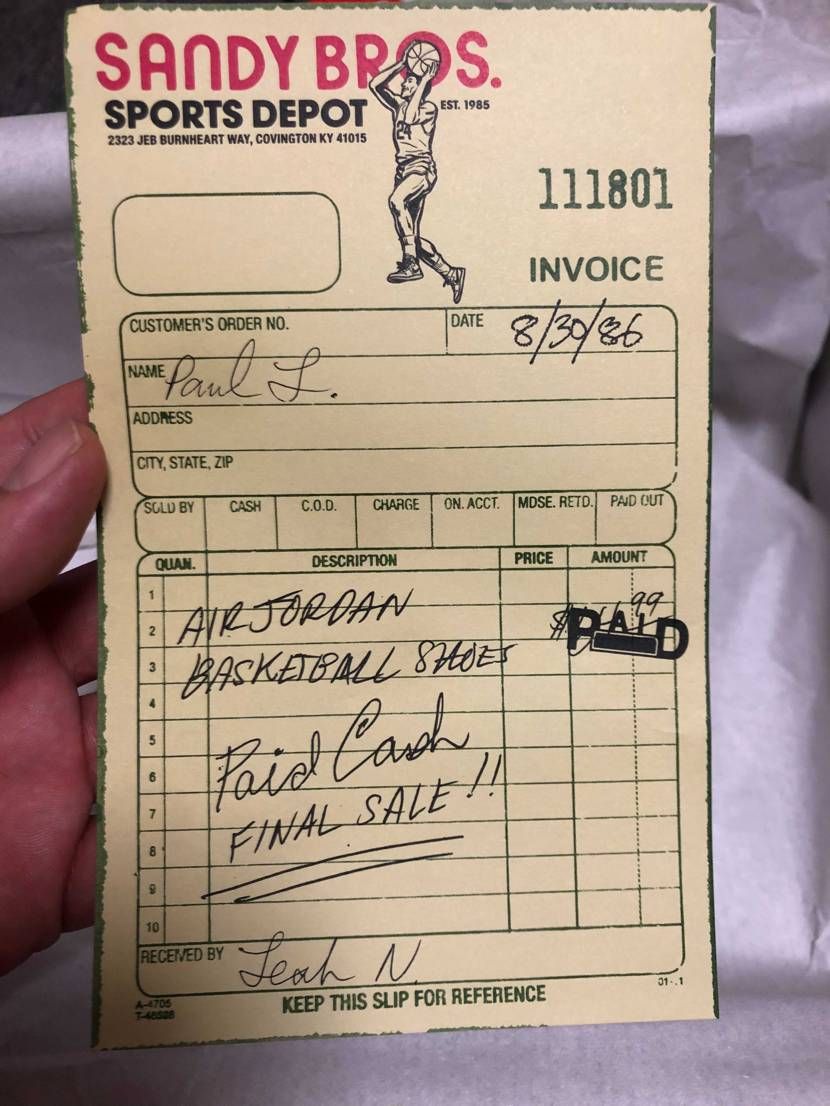 SANDY BROS.
SPORTS DEPOT
EST. 1985
2323 JEB BURNHEART WAY, COVINGTON KY 41015
24
111801
INVOICE
CUSTOMER'S ORDER NO. DATE 8/30/86
NAME Paul L.
ADDRESS
CITY, STATE, ZIP
SOLD BY CASH C.O.D. CHARGE ON. ACCT. MDSE. RETD. PAID OUT
QUAN. DESCRIPTION PRICE AMOUNT
1
2 AIR JORDAN $ .99 PAID
3 BASKETBALL SHOES
4
5
6 Paid Cash
7
8 FINAL SALE!!
9
10
RECEIVED BY Leah N
A-4705
KEEP THIS SLIP FOR REFERENCE